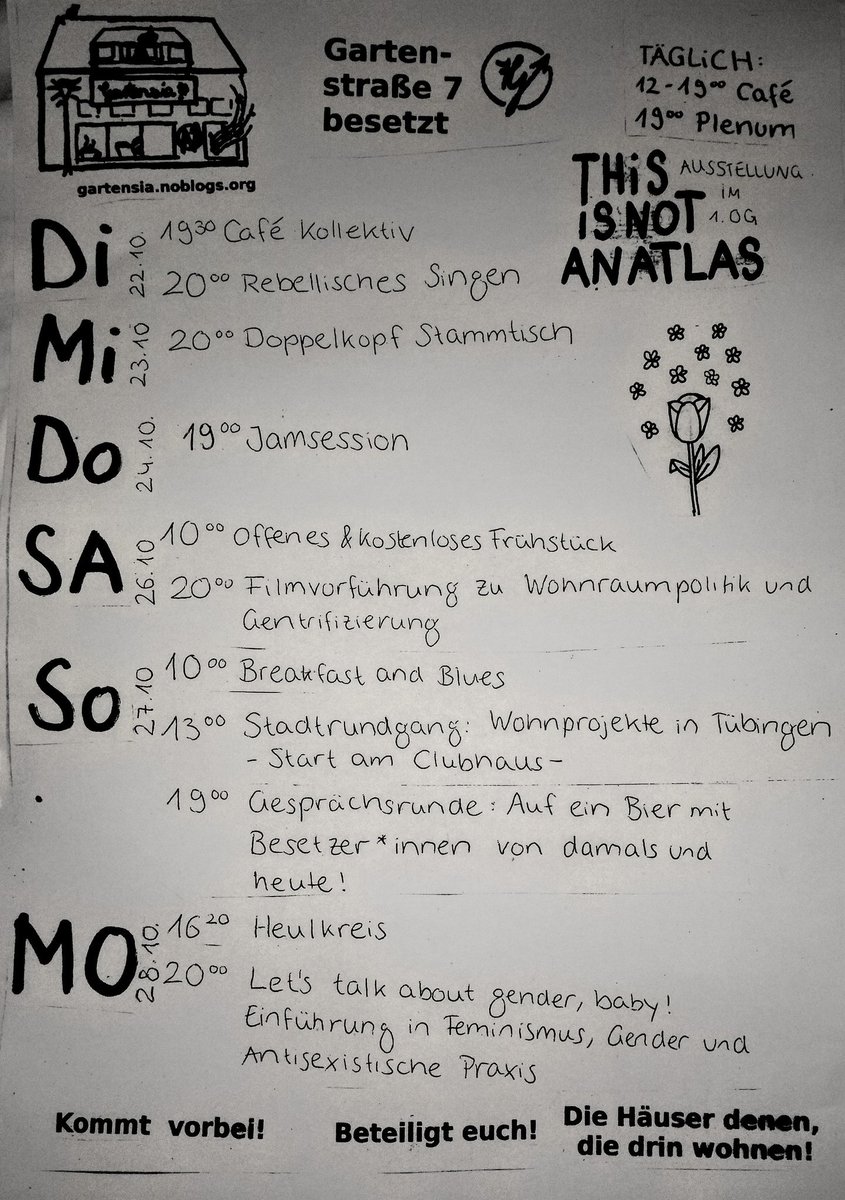 Gartensia
gartensia.noblogs.org
Garten-
straße 7
besetzt
TÄGLiCH:
12-19⁰⁰ Café
19⁰⁰ Plenum
THiS
iS NOT
AN ATLAS
AUSSTELLUNG
iM
1. OG
Di 22.10. 19³⁰ Café Kollektiv
20⁰⁰ Rebellisches Singen
Mi 23.10 20⁰⁰ Doppelkopf Stammtisch
Do 24.10. 19⁰⁰ Jamsession
SA 26.10 10⁰⁰ Offenes & kostenloses Frühstück
20⁰⁰ Filmvorführung zu Wohnraumpolitik und
Gentrifizierung
So 27.10 10⁰⁰ Breakfast and Blues
13⁰⁰ Stadtrundgang: Wohnprojekte in Tübingen
- Start am Clubhaus -
19⁰⁰ Gesprächsrunde: Auf ein Bier mit
Besetzer*innen von damals und
heute!
MO 28.10. 16²⁰ Heulkreis
20⁰⁰ Let's talk about gender, baby!
Einführung in Feminismus, Gender und
Antisexistische Praxis
Kommt vorbei!
Beteiligt euch!
Die Häuser denen,
die drin wohnen!